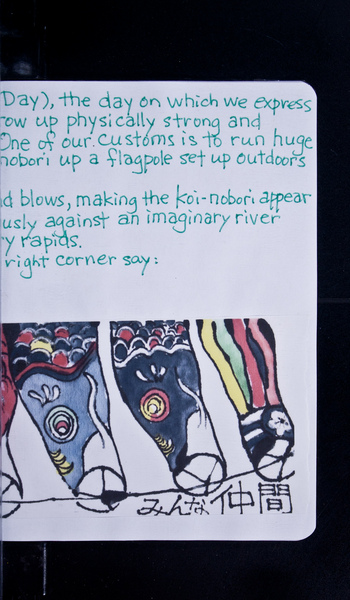 Day), the day on which we express
ow up physically strong and
One of our customs is to run huge
nobori up a flagpole set up outdoors
d blows, making the koi-nobori appear
usly against an imaginary river
y rapids.
right corner say:
みんな仲間